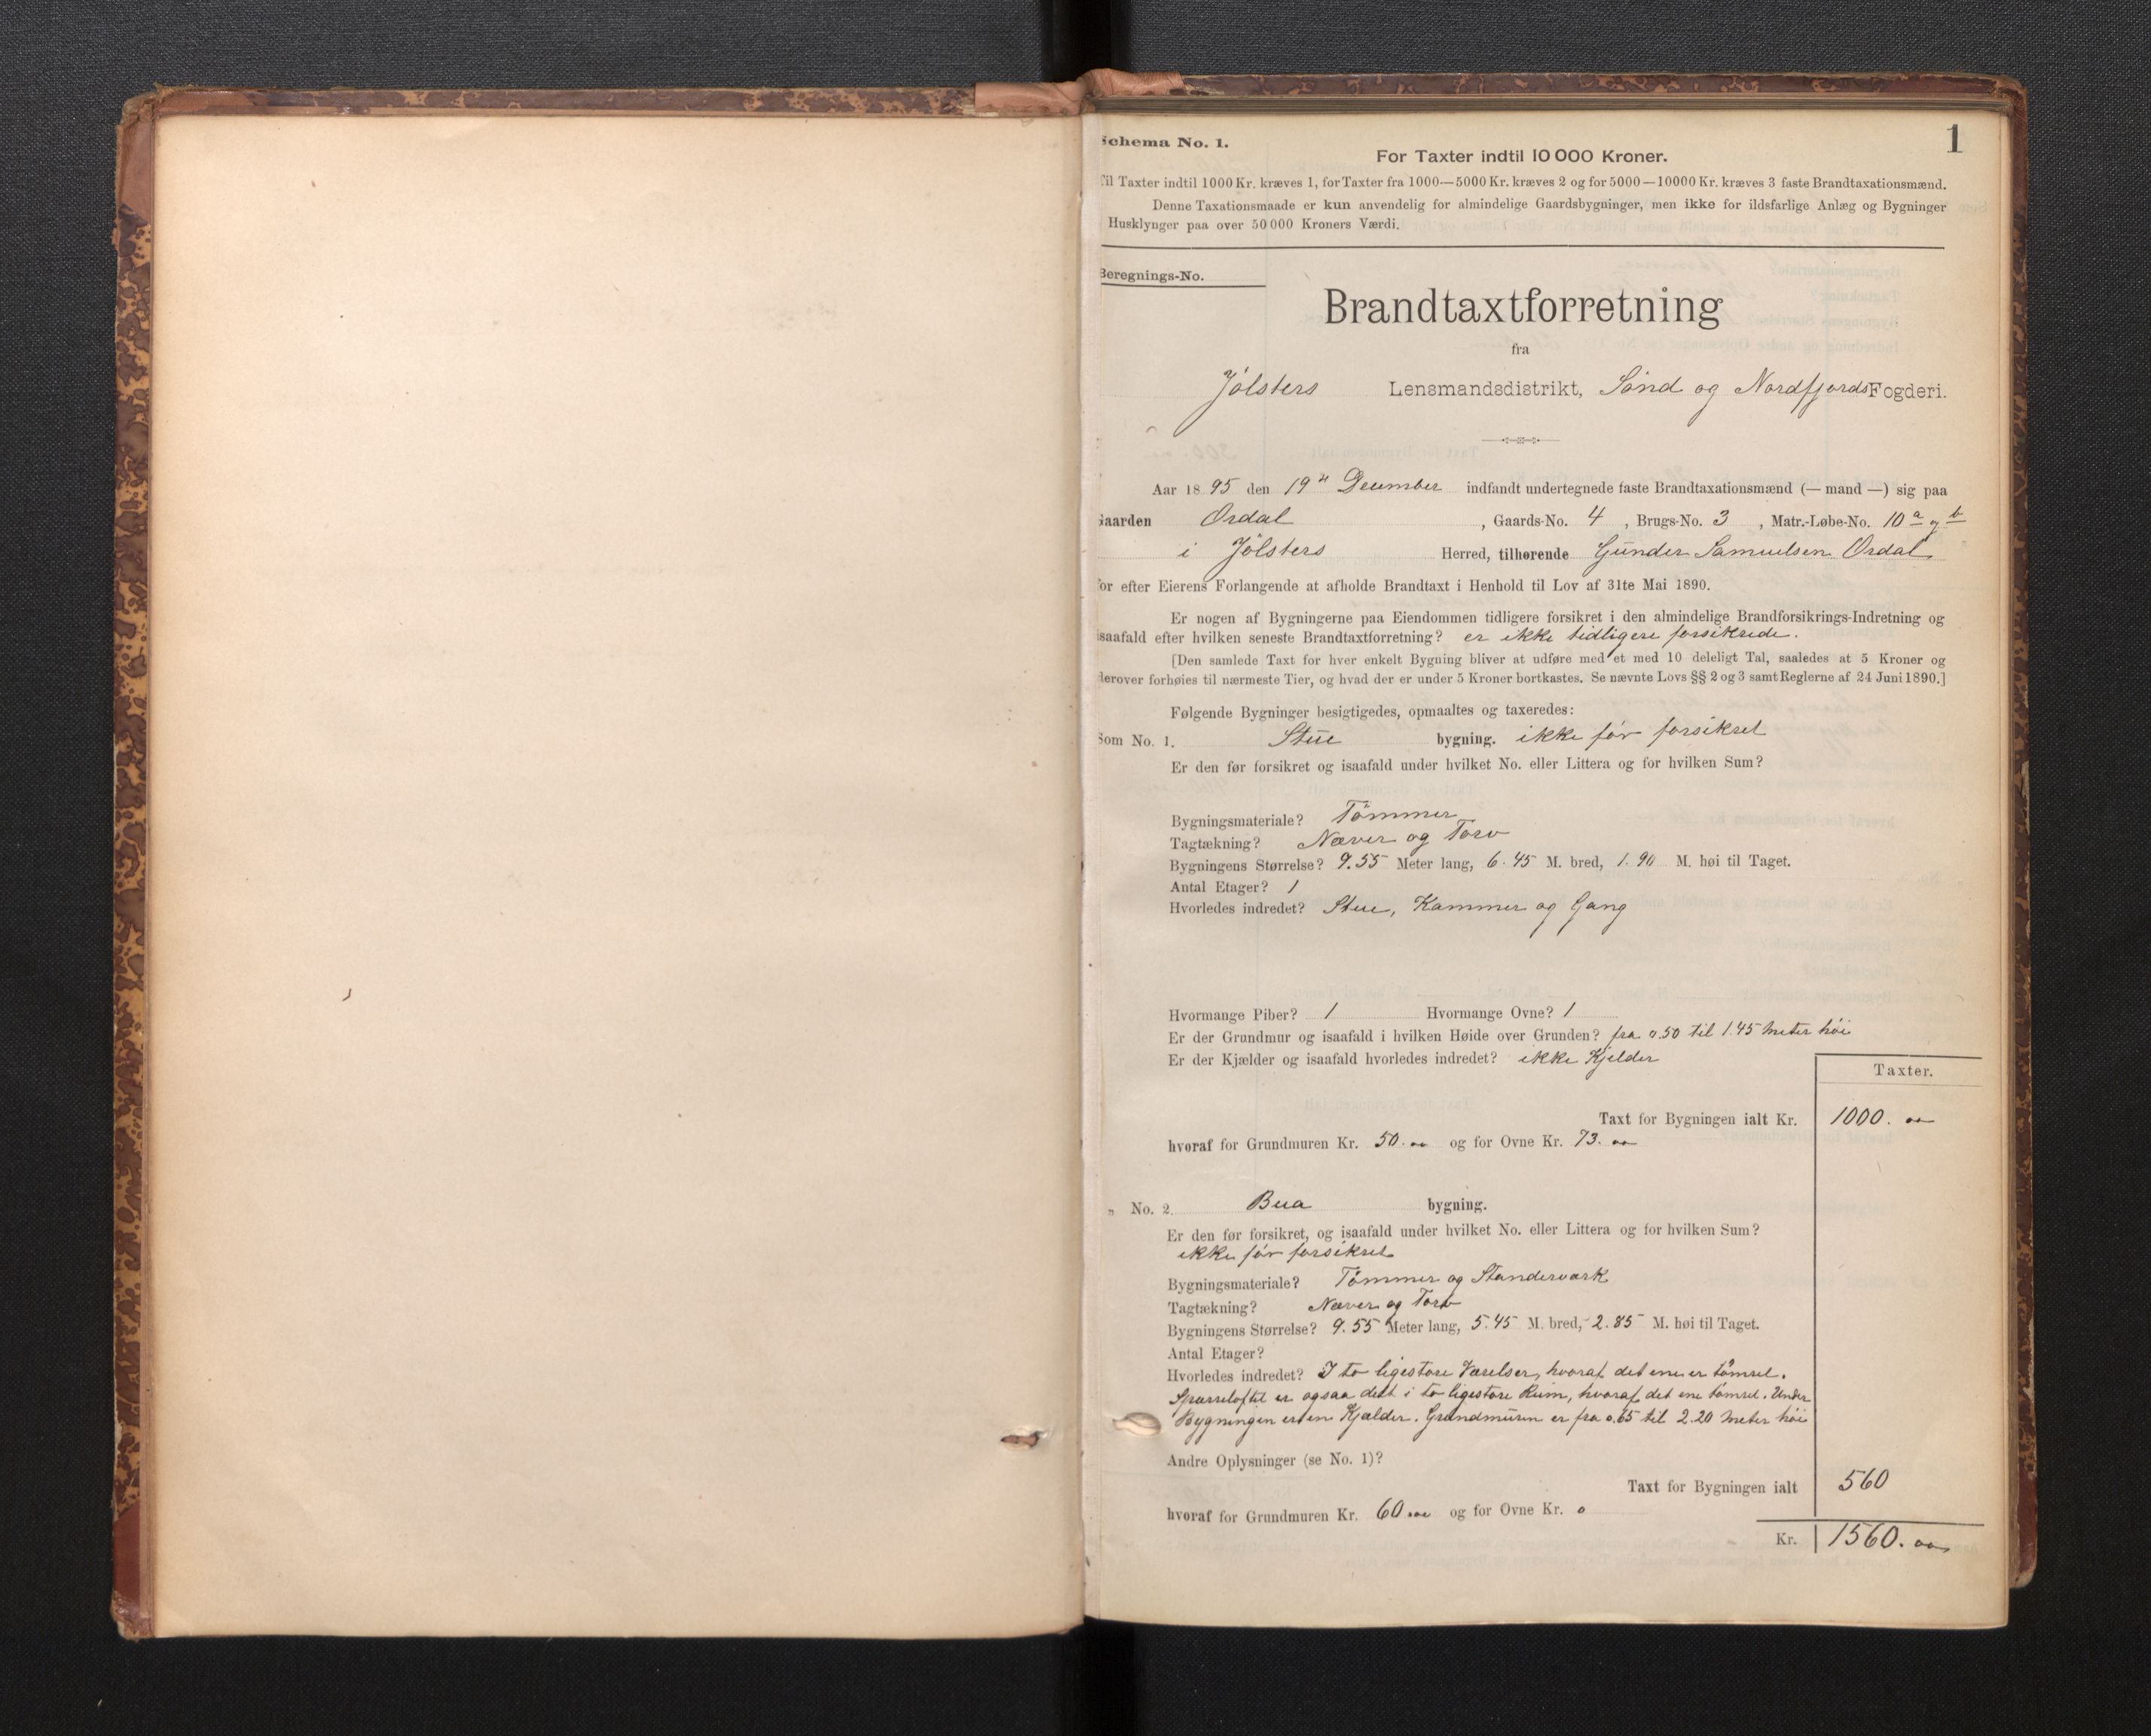 1
Schema No. 1.
For Taxter indtil 10 000 Kroner.
Til Taxter indtil 1000 Kr. kræves 1, for Taxter fra 1000—5000 Kr. kræves 2 og for 5000—10000 Kr. kræves 3 faste Brandtaxationsmænd.
Denne Taxationsmaade er kun anvendelig for almindelige Gaardsbygninger, men ikke for ildsfarlige Anlæg og Bygninger
Husklynger paa over 50 000 Kroners Værdi.
Beregnings-No.
Brandtaxtforretning
fra
Jölsters Lensmandsdistrikt, Sönd og Nordfjords Fogderi.
Aar 1895 den 19 December indfandt undertegnede faste Brandtaxationsmænd (— mand —) sig paa
Gaarden Ordal, Gaards-No. 4, Brugs-No. 3, Matr.-Løbe-No. 10 a og b
i Jölsters Herred, tilhørende Gunder Samuelsen Ordal
for efter Eierens Forlangende at afholde Brandtaxt i Henhold til Lov af 31te Mai 1890.
Er nogen af Bygningerne paa Eiendommen tidligere forsikret i den almindelige Brandforsikrings-Indretning og
isaafald efter hvilken seneste Brandtaxtforretning? er ikke tidligere forsikrede.
[Den samlede Taxt for hver enkelt Bygning bliver at udføre med et med 10 deleligt Tal, saaledes at 5 Kroner og
derover forhøies til nærmeste Tier, og hvad der er under 5 Kroner bortkastes. Se nævnte Lovs §§ 2 og 3 samt Reglerne af 24 Juni 1890.]
Følgende Bygninger besigtigedes, opmaaltes og taxeredes:
Som No. 1. Stue bygning. ikke för forsikret
Er den før forsikret og isaafald under hvilket No. eller Littera og for hvilken Sum?
Bygningsmateriale? Tömmer
Tagtækning? Næver og Torv
Bygningens Størrelse? 9.55 Meter lang, 6.45 M. bred, 1.90 M. høi til Taget.
Antal Etager? 1
Hvorledes indredet? Stue, Kammer og Gang
Hvormange Piber? 1 Hvormange Ovne? 1
Er der Grundmur og isaafald i hvilken Høide over Grunden? fra 0.50 til 1.45 Meter höi
Er der Kjælder og isaafald hvorledes indredet? ikke Kjelder
Taxter.
Taxt for Bygningen ialt Kr. 1000. 00
hvoraf for Grundmuren Kr. 50. 00 og for Ovne Kr. 73. 00
„ No. 2. Bua bygning.
Er den før forsikret, og isaafald under hvilket No. eller Littera og for hvilken Sum?
ikke för forsikret
Bygningsmateriale? Tömmer og Standerværk
Tagtækning? Næver og Torv
Bygningens Størrelse? 9.55 Meter lang, 5.45 M. bred, 2.85 M. høi til Taget.
Antal Etager?
Hvorledes indredet? I to ligestore Værelser, hvoraf det ene er tömret.
Sparreloftet er ogsaa delt i to ligestore Rum, hvoraf det ene tömret. Under
Bygningen er en Kjælder. Grundmuren er fra 0.65 til 2.20 Meter höi
Andre Oplysninger (se No. 1)?
Taxt for Bygningen ialt 560
hvoraf for Grundmuren Kr. 60 00 og for Ovne Kr. 0
Kr. 1560. 00